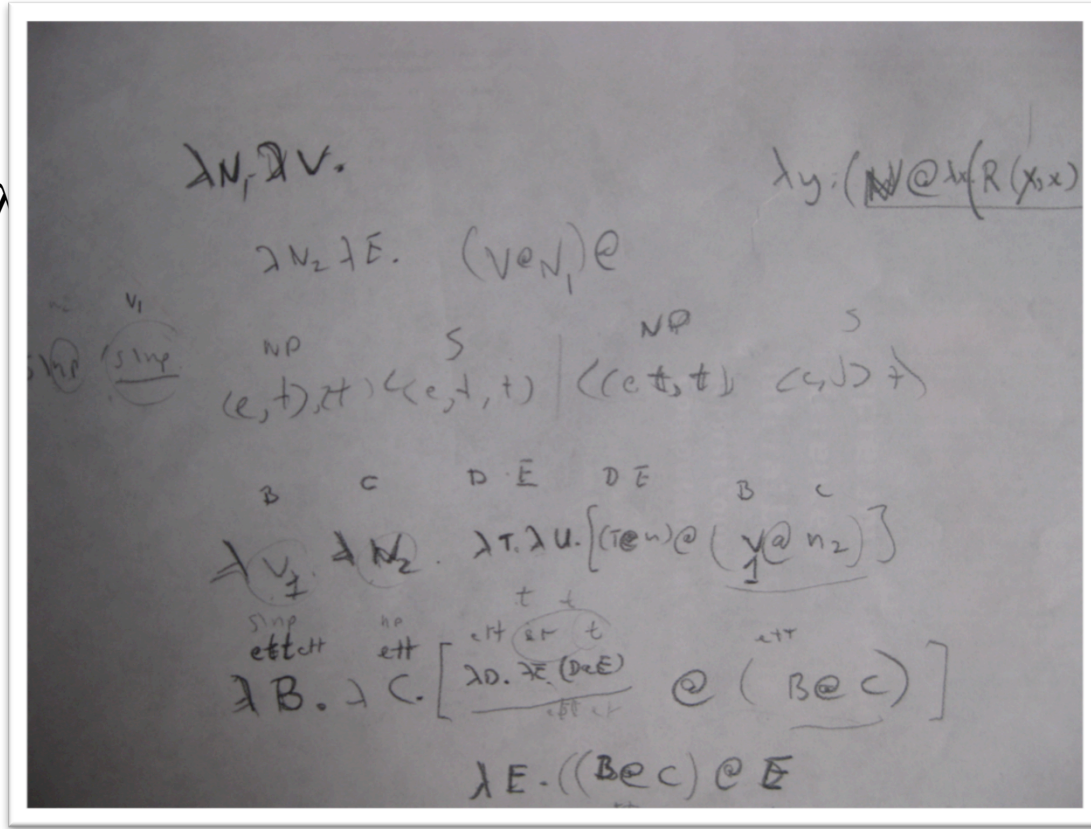 λN₁ λV. λy.(N@λx(R(y,x)
λN₂ λE. (V@N₁)@
V₁
NP S NP S
s\np (s\np (e,t),t) <(e,t,t) ((e t,t),
B C D E D E B C
λV₁. λN₂. λT.λU.[(T@u)@(V₁@n₂)]
t t
s\np np ett et t ett
ettett ett
λB.λC.[λD.λE.(D@E) @ (B@C)]
ett et
λE.((B@C)@E